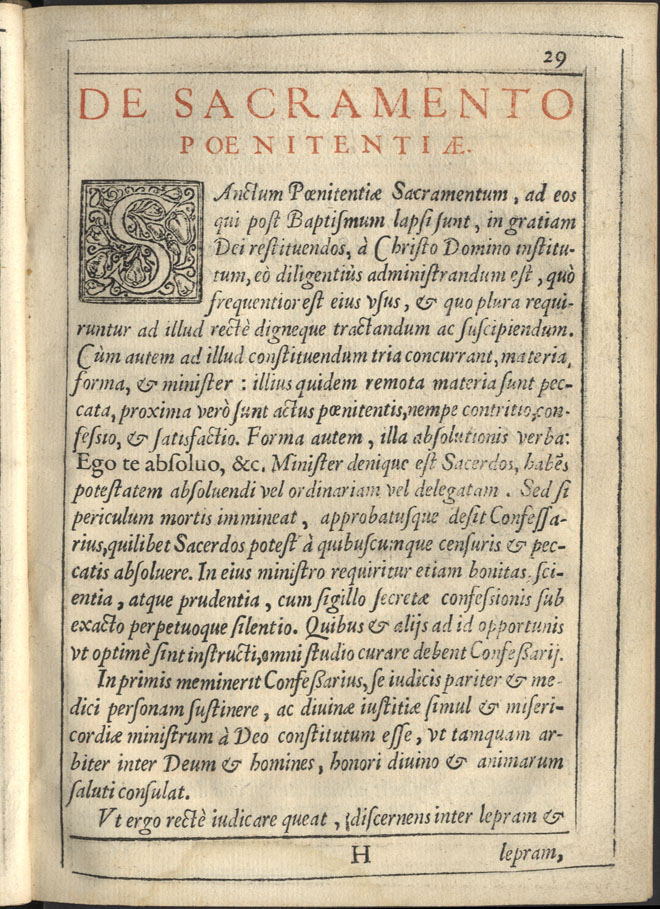 29
DE SACRAMENTO
POENITENTIÆ.
SAnctum Pœnitentiæ Sacramentum, ad eos
qui poſt Baptiſmum lapſi ſunt, in gratiam
Dei reſtituendos, à Chriſto Domino inſtitu-
tum, eò diligentiùs adminiſtrandum eſt, quò
frequentior eſt eius vſus, & quo plura requi-
runtur ad illud rectè digneque tractandum ac ſuſcipiendum.
Cùm autem ad illud conſtituendum tria concurrant, materia,
forma, & miniſter: illius quidem remota materia ſunt pec-
cata, proxima verò ſunt actus pœnitentis, nempe contritio, con-
feſſio, & ſatisfactio. Forma autem, illa abſolutionis verba:
Ego te abſoluo, &c. Miniſter denique eſt Sacerdos, habẽs
poteſtatem abſoluendi vel ordinariam vel delegatam. Sed ſi
periculum mortis immineat, approbatuſque deſit Confeſſa-
rius, quilibet Sacerdos poteſt à quibuſcumque cenſuris & pec-
catis abſoluere. In eius miniſtro requiritur etiam bonitas, ſci-
entia, atque prudentia, cum ſigillo ſecretæ confeſsionis ſub
exacto perpetuoque ſilentio. Quibus & alijs ad id opportunis
vt optimè ſint inſtructi, omni ſtudio curare debent Confeßarij.
In primis meminerit Confeßarius, ſe iudicis pariter & me-
dici perſonam ſuſtinere, ac diuinæ iuſtitiæ ſimul & miſeri-
cordiæ miniſtrum à Deo conſtitutum eſſe, vt tamquam ar-
biter inter Deum & homines, honori diuino & animarum
ſaluti conſulat.
Vt ergo rectè iudicare queat, diſcernens inter lepram &
H lepram,